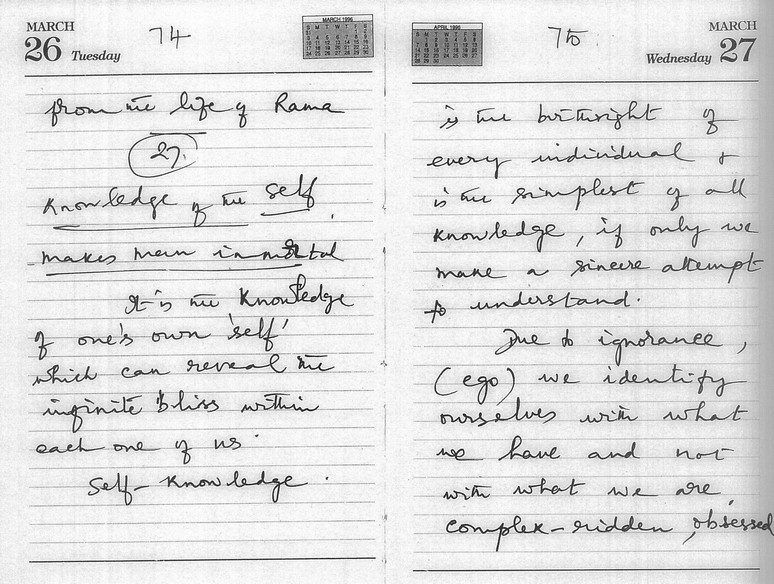 MARCH
26 Tuesday
74
MARCH 1996
from the life of Rama
27.
Knowledge of the self
makes man immortal
It is the Knowledge
of one's own 'self'
which can reveal the
infinite bliss within
each one of us.
Self-Knowledge.
APRIL 1996
75
MARCH
Wednesday 27
is the birthright of
every individual &
is the simplest of all
knowledge, if only we
make a sincere attempt
to understand.
Due to ignorance,
(ego) we identify
ourselves with what
we have and not
with what we are,
complex-ridden, obsessed